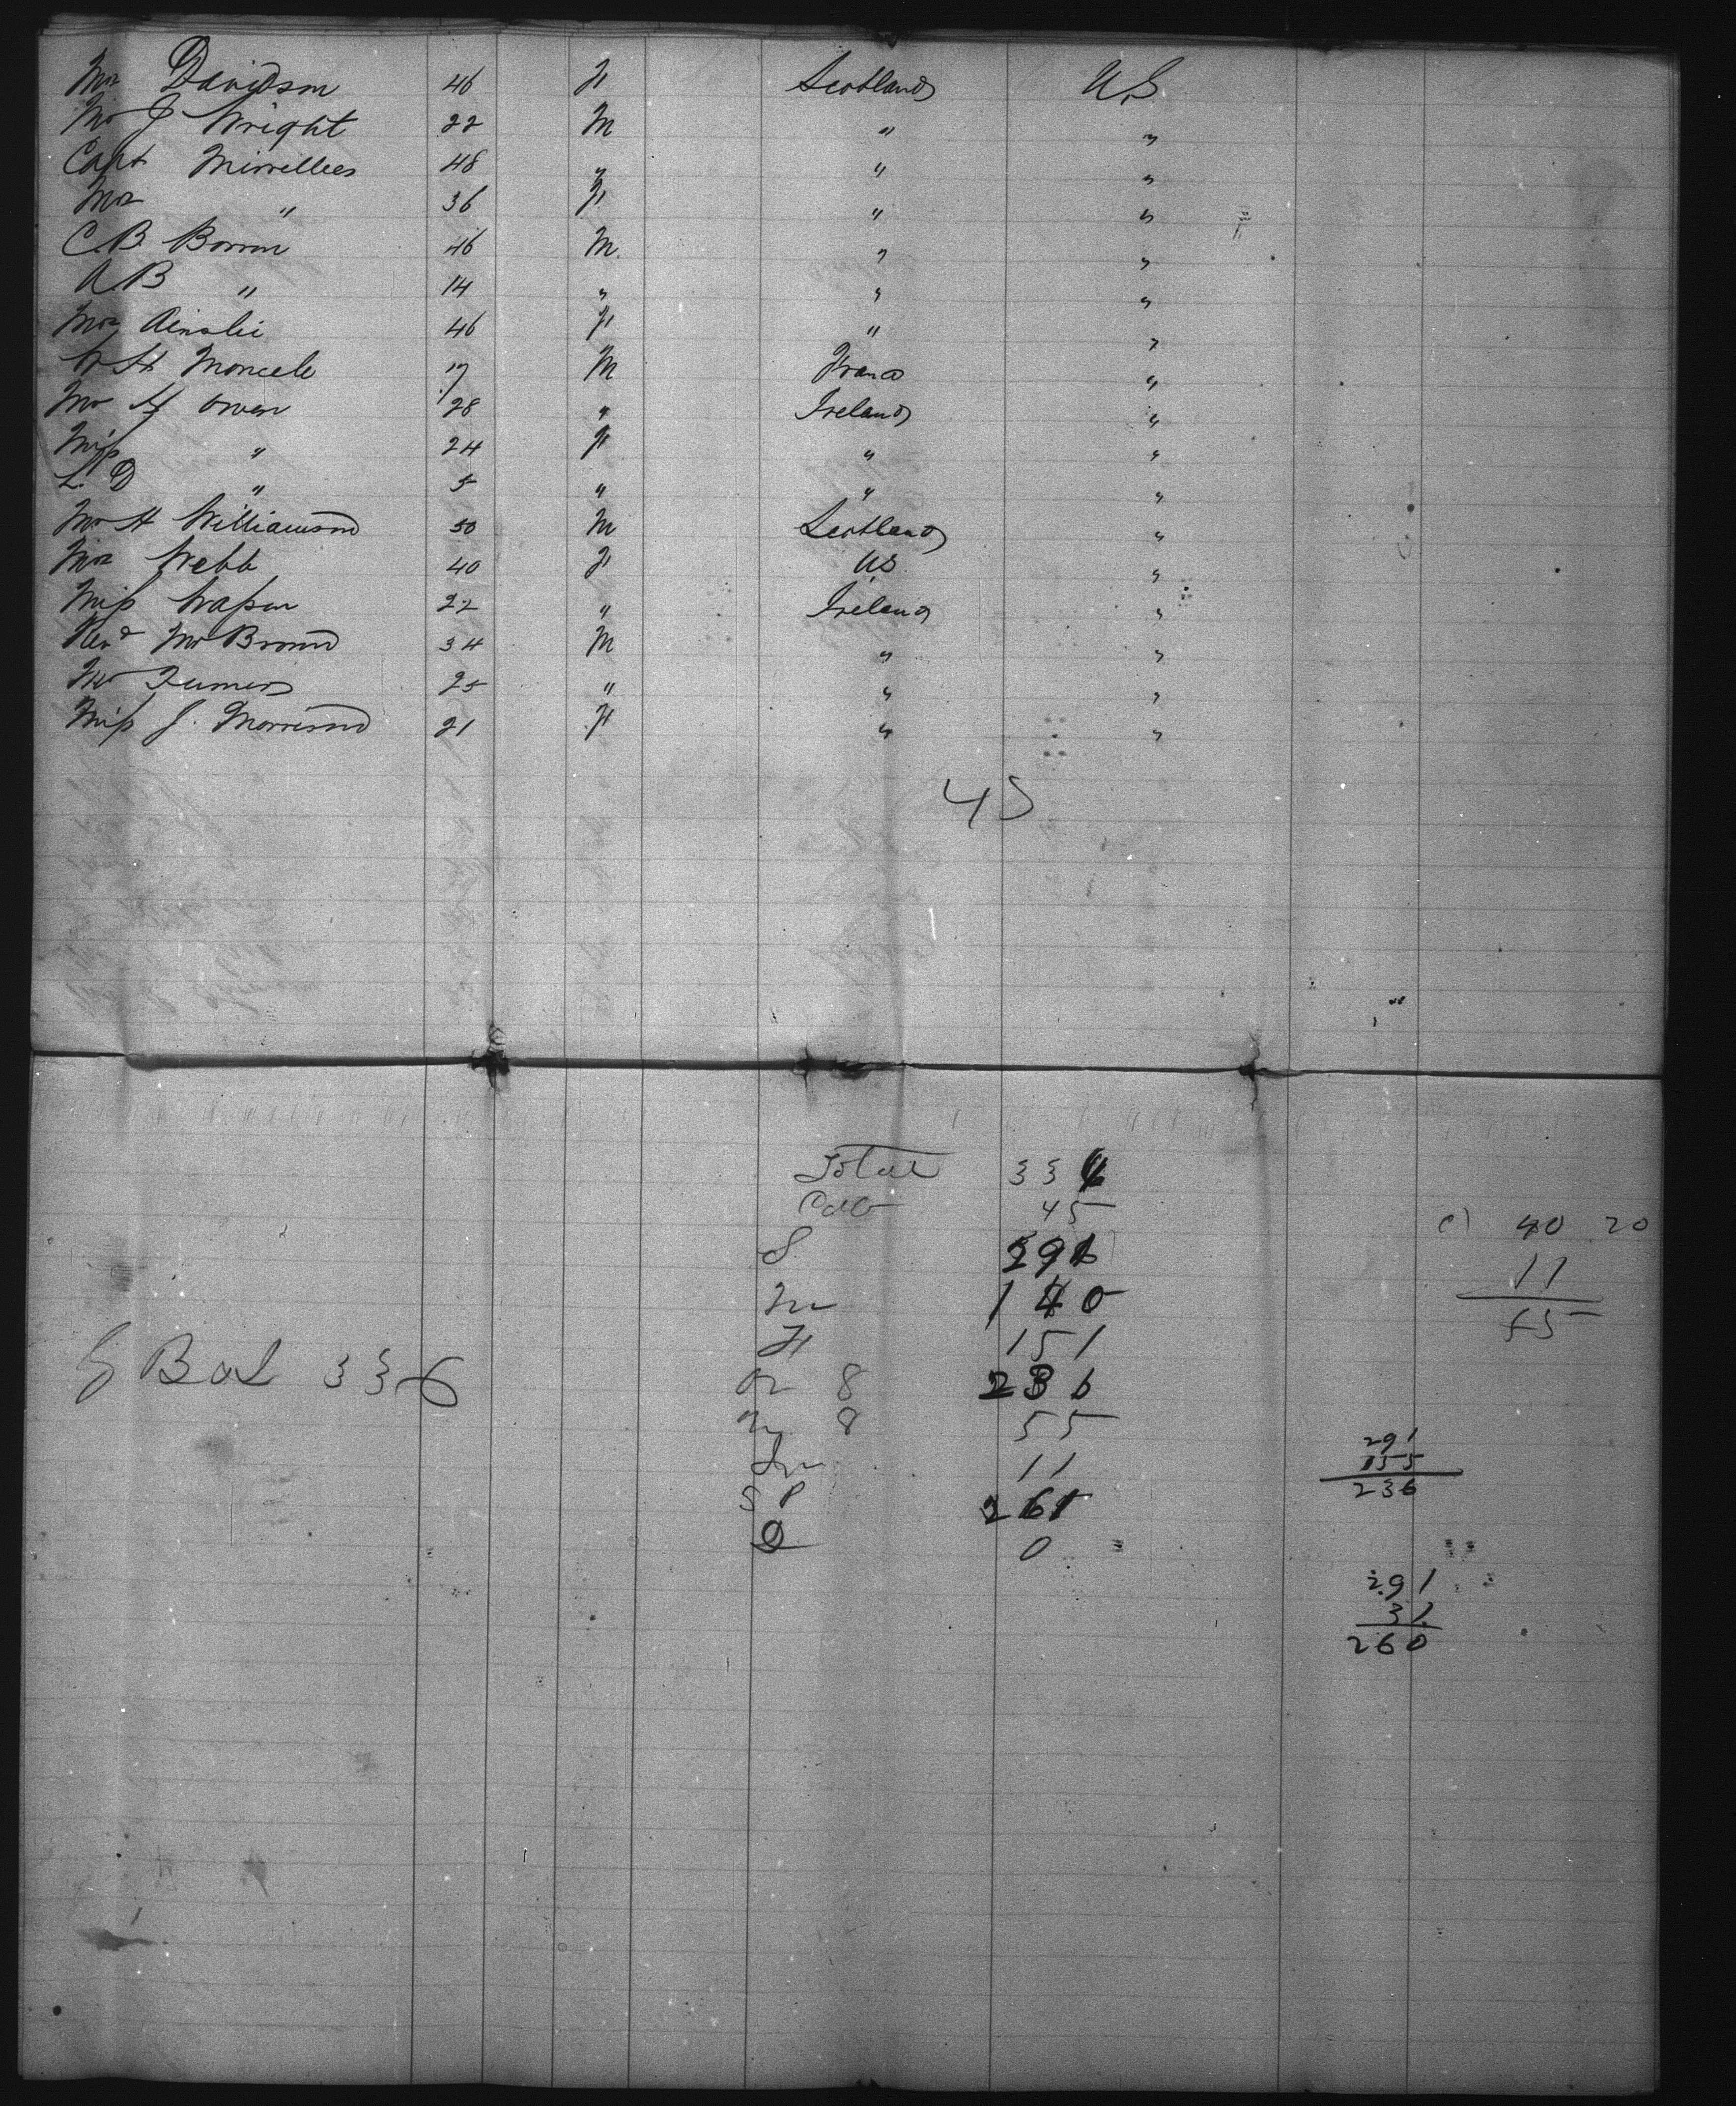 Mrs Davidson 46 F Scotland U.S
Mr J Wright 22 M " "
Capt Mirrellees 48 " " "
Mrs " 36 F " "
C.B. Borron 46 M " "
A B " 14 " " "
Mrs Ainslie 46 F " "
17 M France "
Mr H Owen 28 " Ireland "
Miss " 24 F " "
L. D " 5 " " "
Mr H Williamson 50 M Scotland "
Mrs Webb 40 F U.S "
Miss 22 " Ireland "
Revd Mr Brown 34 M " "
Mr 25 " " "
Miss J. Morrison 21 F " "
45
Total 336
Cab 45
S 291
M 140
F 151
8 236
8 55
11
S P
0 0
Bal 336
40 20
11
55
291
55
236
291
31
260